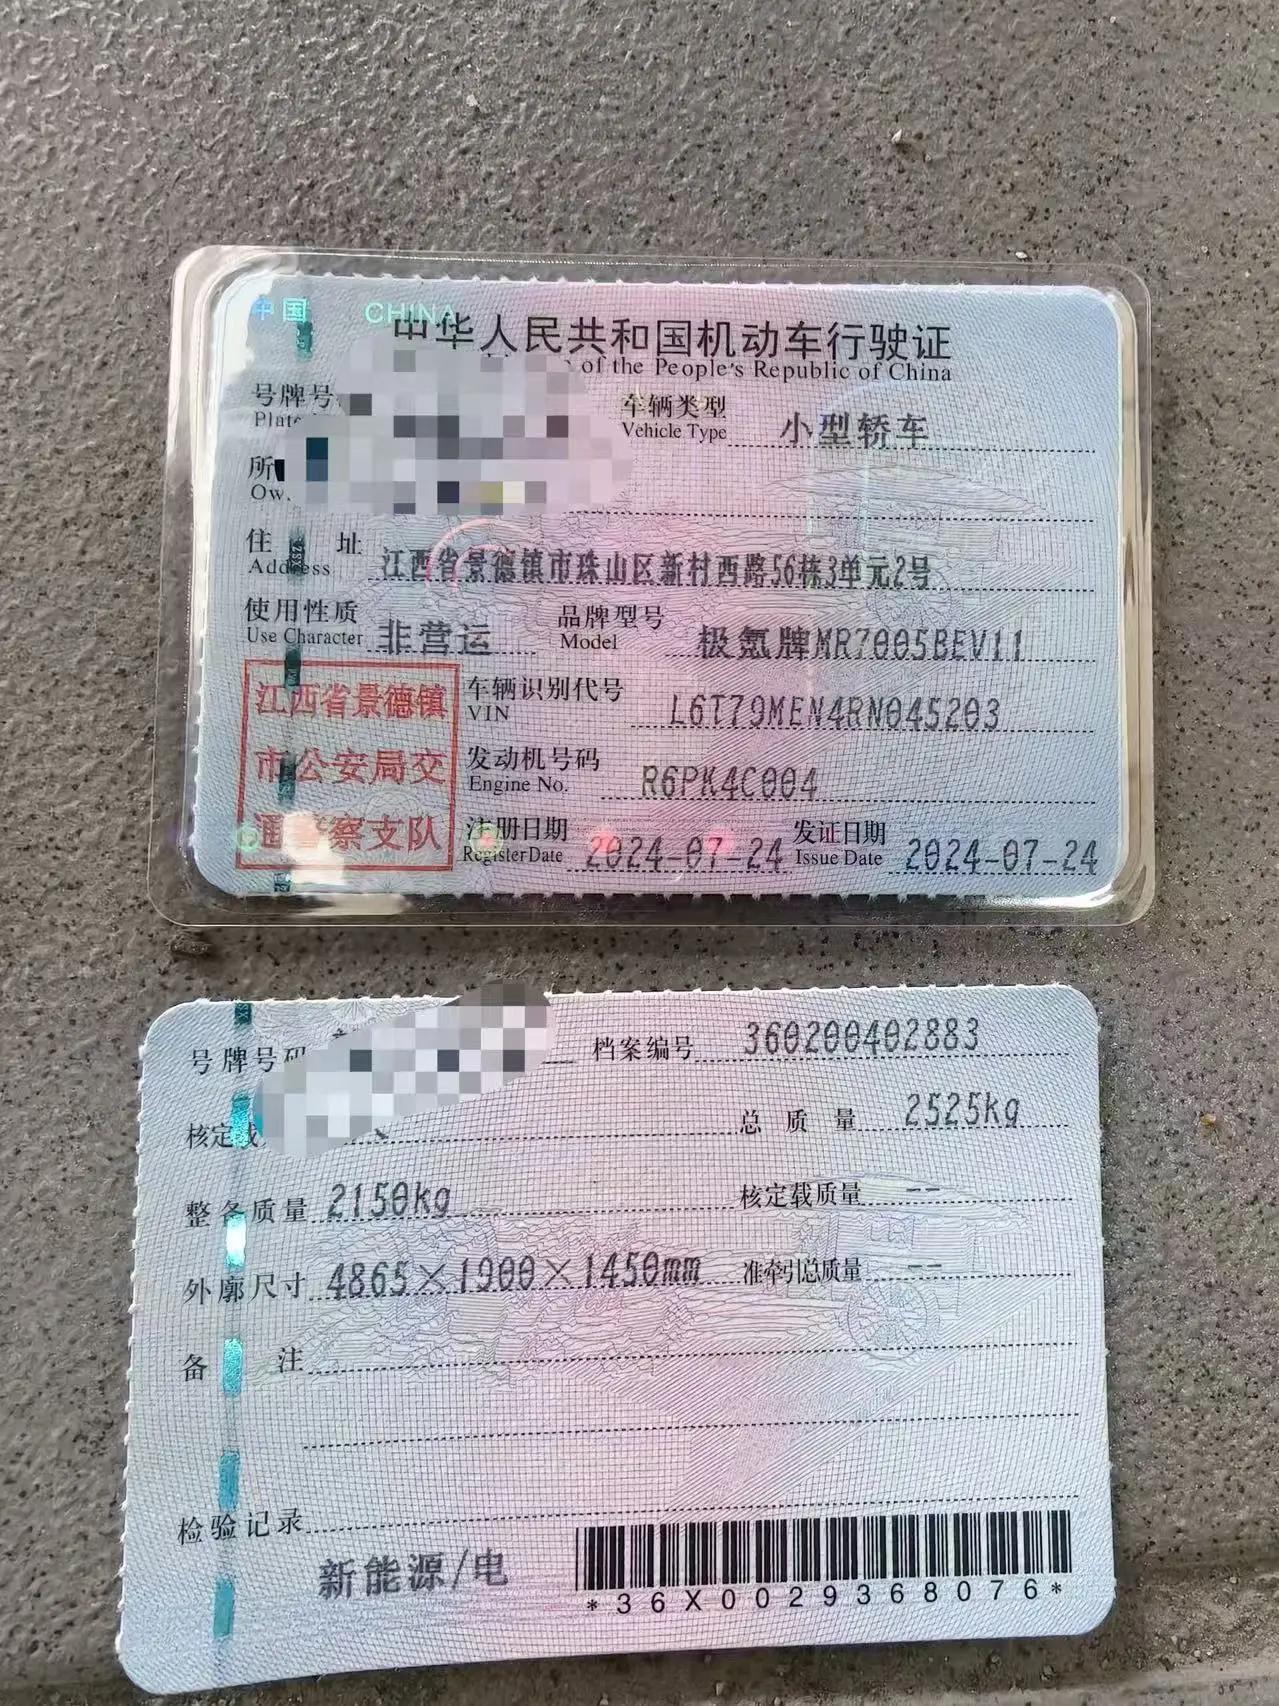 中国 CHINA
中华人民共和国机动车行驶证
of the People's Republic of China
号牌号
车辆类型 小型轿车
Vehicle Type
所
住 址 江西省景德镇市珠山区新村西路56栋3单元2号
Address
使用性质 非营运 品牌型号 极氪牌MR7005BEV11
Use Character Model
江西省景德镇
市公安局交
通警察支队
车辆识别代号 L6T79MEN4RN045203
VIN
发动机号码 R6PK4C004
Engine No.
注册日期 2024-07-24 发证日期 2024-07-24
Register Date Issue Date
号牌号码 档案编号 360200402883
核定载 总质量 2525kg
整备质量 2150kg 核定载质量 --
外廓尺寸 4865×1900×1450mm 准牵引总质量 --
备 注
检验记录
新能源/电
*36X0029368076*